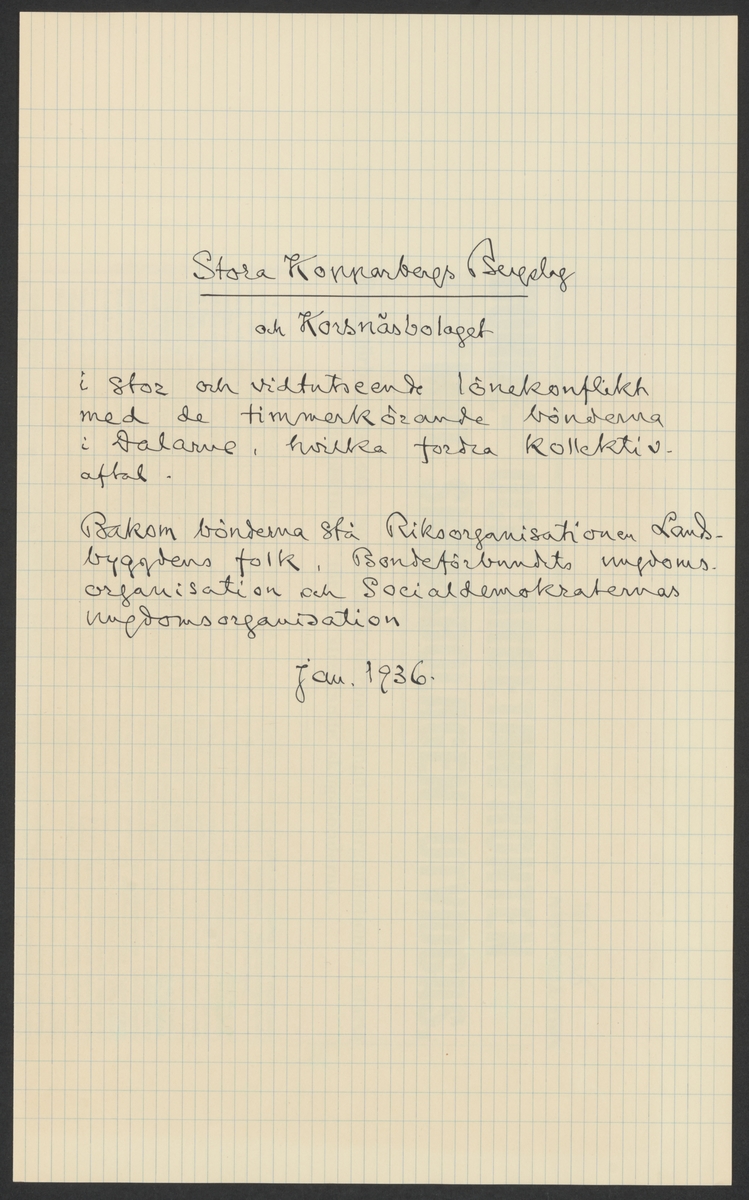 Stora Kopparbergs Bergslag
och Korsnäsbolaget
i stor och vidtutseende lönekonflikt
med de timmerkörande bönderna
i Dalarne, hvilka fordra kollektiv-
aftal.
Bakom bönderna stå Riksorganisationen Lands-
bygdens folk, Bondeförbundets ungdoms-
organisation och Socialdemokraternas
ungdomsorganisation
jan. 1936.